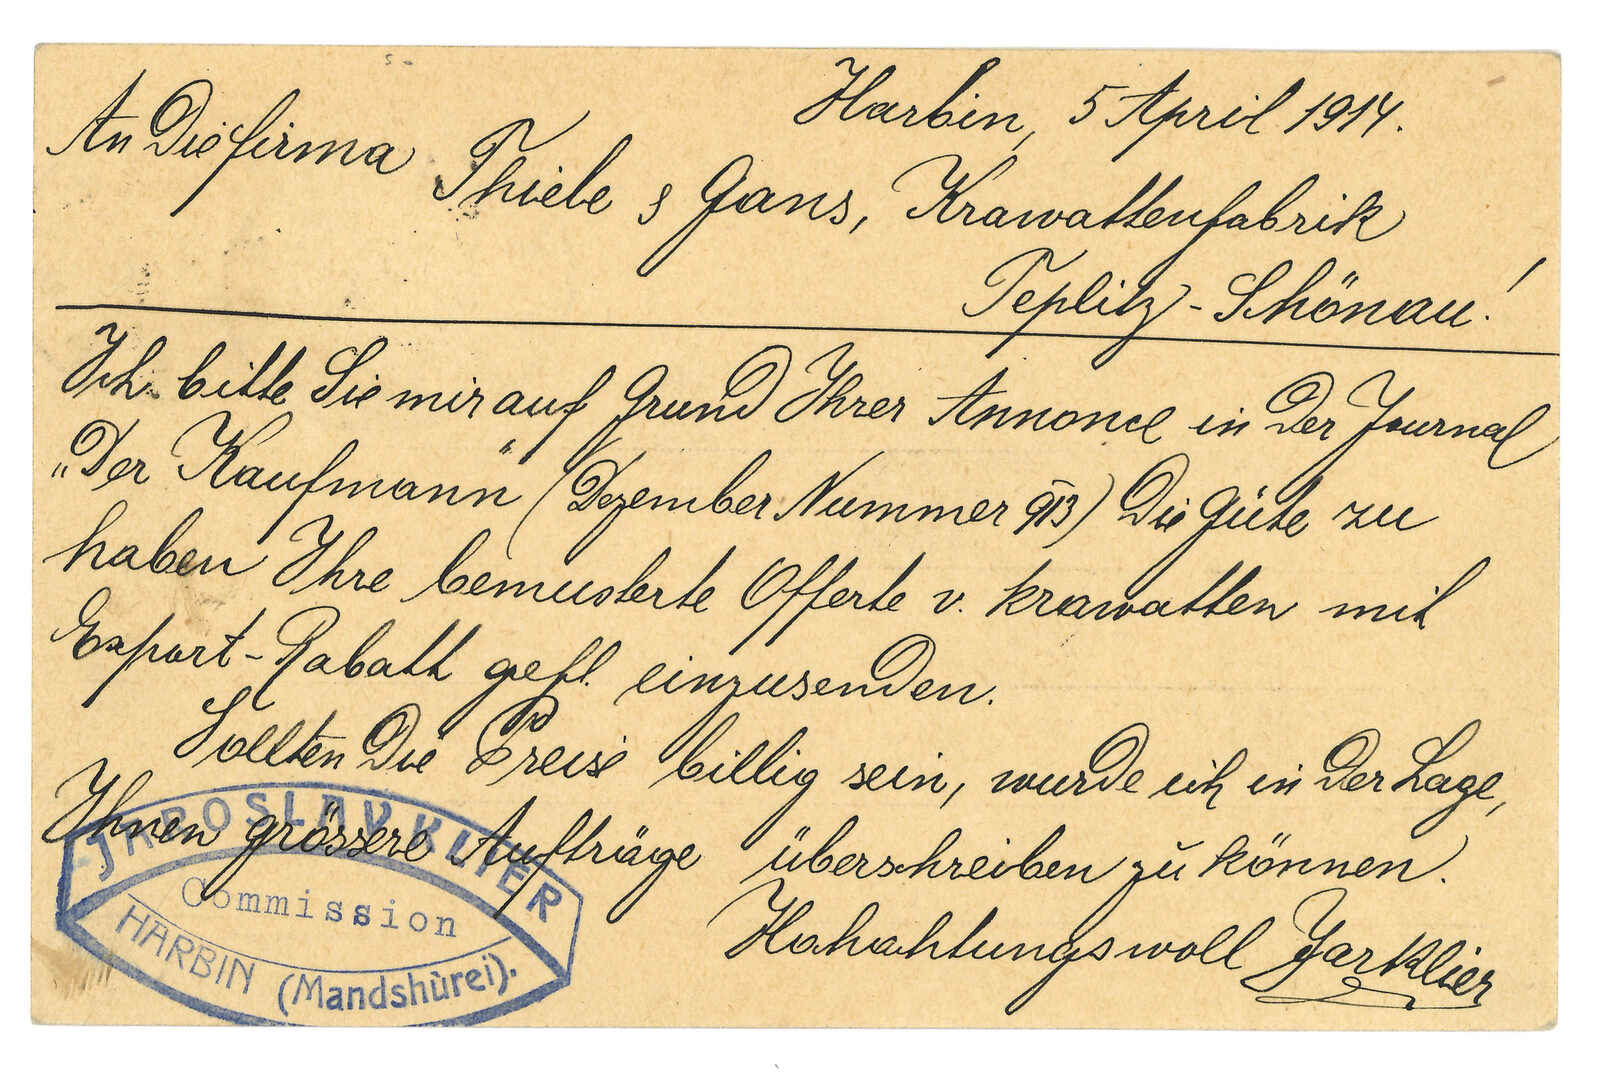 Harbin, 5 April 1914.
An Die firma Thiele & Gans, Krawattenfabrik
Teplitz-Schönau!
Ich bitte Sie mir auf Grund Ihrer Annonce in der Journal
„Der Kaufmann" (Dezember Nummer 913) Die Güte zu
haben Ihre bemusterte Offerte v. Krawatten mit
Export-Rabatt gefl. einzusenden.
Sollten Die Preise billig sein, wurde ich in der Lage,
Ihnen grössere Aufträge überschreiben zu können.
Hohahtungswoll Jar Klier
JAROSLAV KLIER
Commission
HARBIN (Mandshùrei).